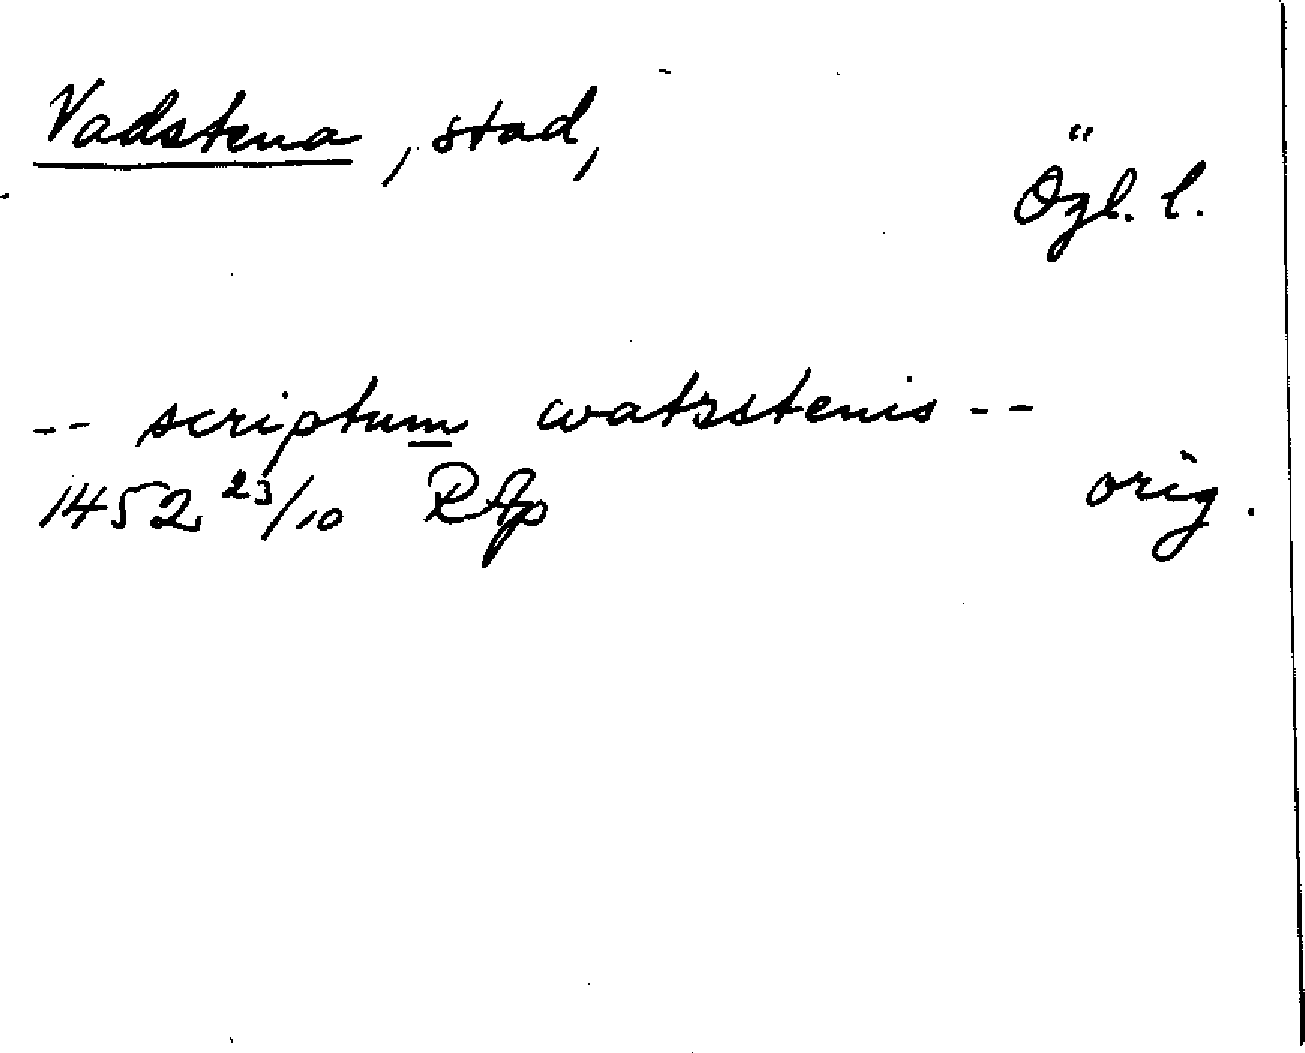 Vadstena, stad,
Ögl. l.
-- scriptum watzstenis --
1452 23/10 RAp orig.